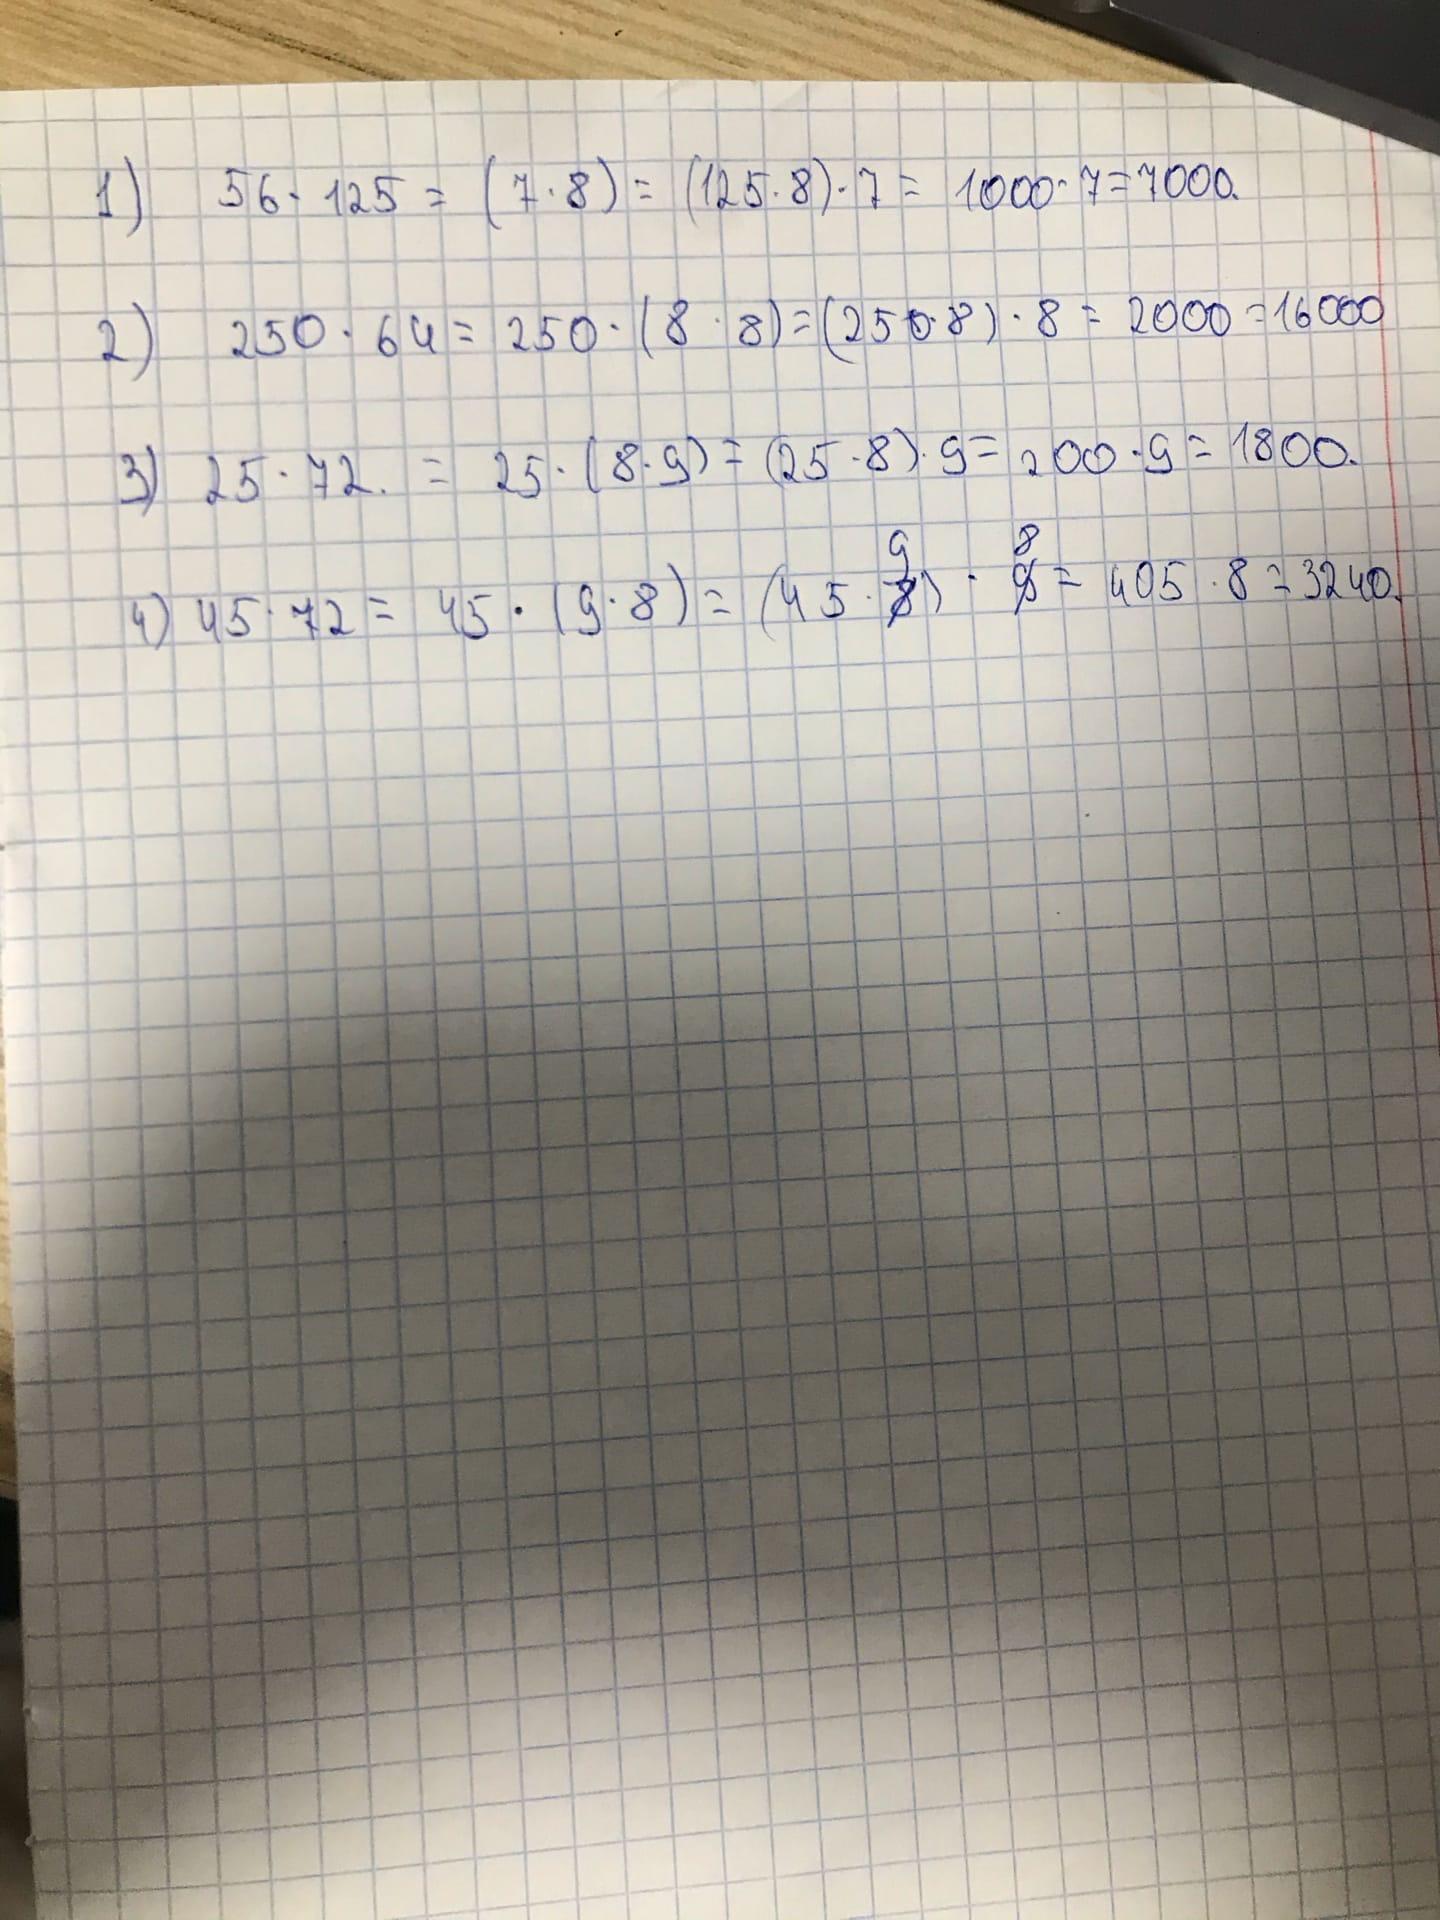 1) 56 · 125 = (7 · 8) = (125 · 8) · 7 = 1000 · 7 = 7000.
2) 250 · 64 = 250 · (8 · 8) = (250 · 8) · 8 = 2000 = 16000
3) 25 · 72. = 25 · (8 · 9) = (25 · 8) · 9 = 200 · 9 = 1800.
4) 45 · 72 = 45 · (9 · 8) = (45 · 9) · 8 = 405 · 8 = 3240.